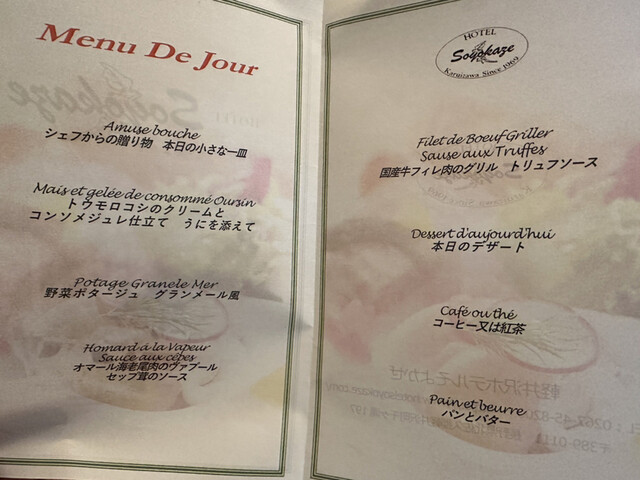 Menu De Jour
Amuse bouche
シェフからの贈り物　本日の小さな一皿
Mais et gelée de consommé Oursin
トウモロコシのクリームと
コンソメジュレ仕立て　うにを添えて
Potage Granele Mer
野菜ポタージュ　グランメール風
Homard á la Vapeur
Sauce aux cépes
オマール海老尾肉のヴァプール
セップ茸のソース
HOTEL
Soyokaze
Karuizawa Since 1969
Filet de Boeuf Griller
Sause aux Truffes
国産牛フィレ肉のグリル　トリュフソース
Dessert d'aujourd'hui
本日のデザート
Café ou thé
コーヒー又は紅茶
Pain et beurre
パンとバター